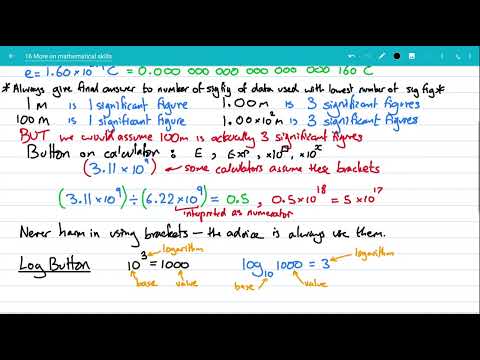 16 More on mathematical skills
e = 1.60 × 10 C = 0.000 000 000 000 000 000 160 C
*Always give final answer to number of sig fig of data used with lowest number of sig fig*
1 m is 1 significant figure 1.00 m is 3 significant figures
100 m is 1 significant figure 1.00×10² m is 3 significant figures
BUT we would assume 100m is actually 3 significant figures
Button on calculator : E, EXP, ×10ⁿ, ×10ˣ
(3.11 × 10⁹) ← some calculators assume these brackets
(3.11×10⁹) ÷ (6.22×10⁹) = 0.5 , 0.5×10¹⁸ = 5 × 10¹⁷
interpreted as numerator
Never harm in using brackets – the advice is always use them.
Log Button 10³ = 1000 logarithm log₁₀ 1000 = 3 logarithm
base value base value